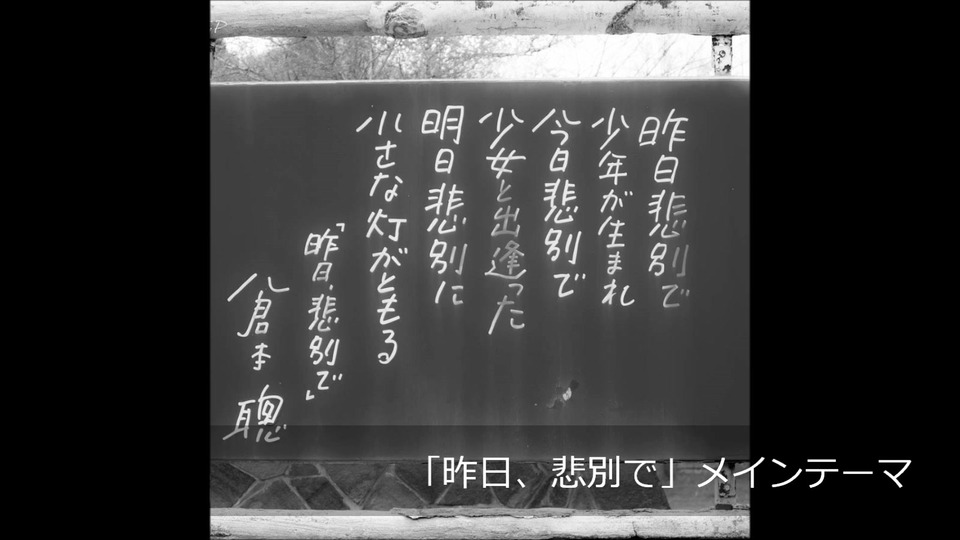 昨日悲別で
少年が生まれ
今日悲別で
少女と出逢った
明日悲別に
小さな灯がともる
「昨日、悲別で」
倉本聰
「昨日、悲別で」メインテーマ